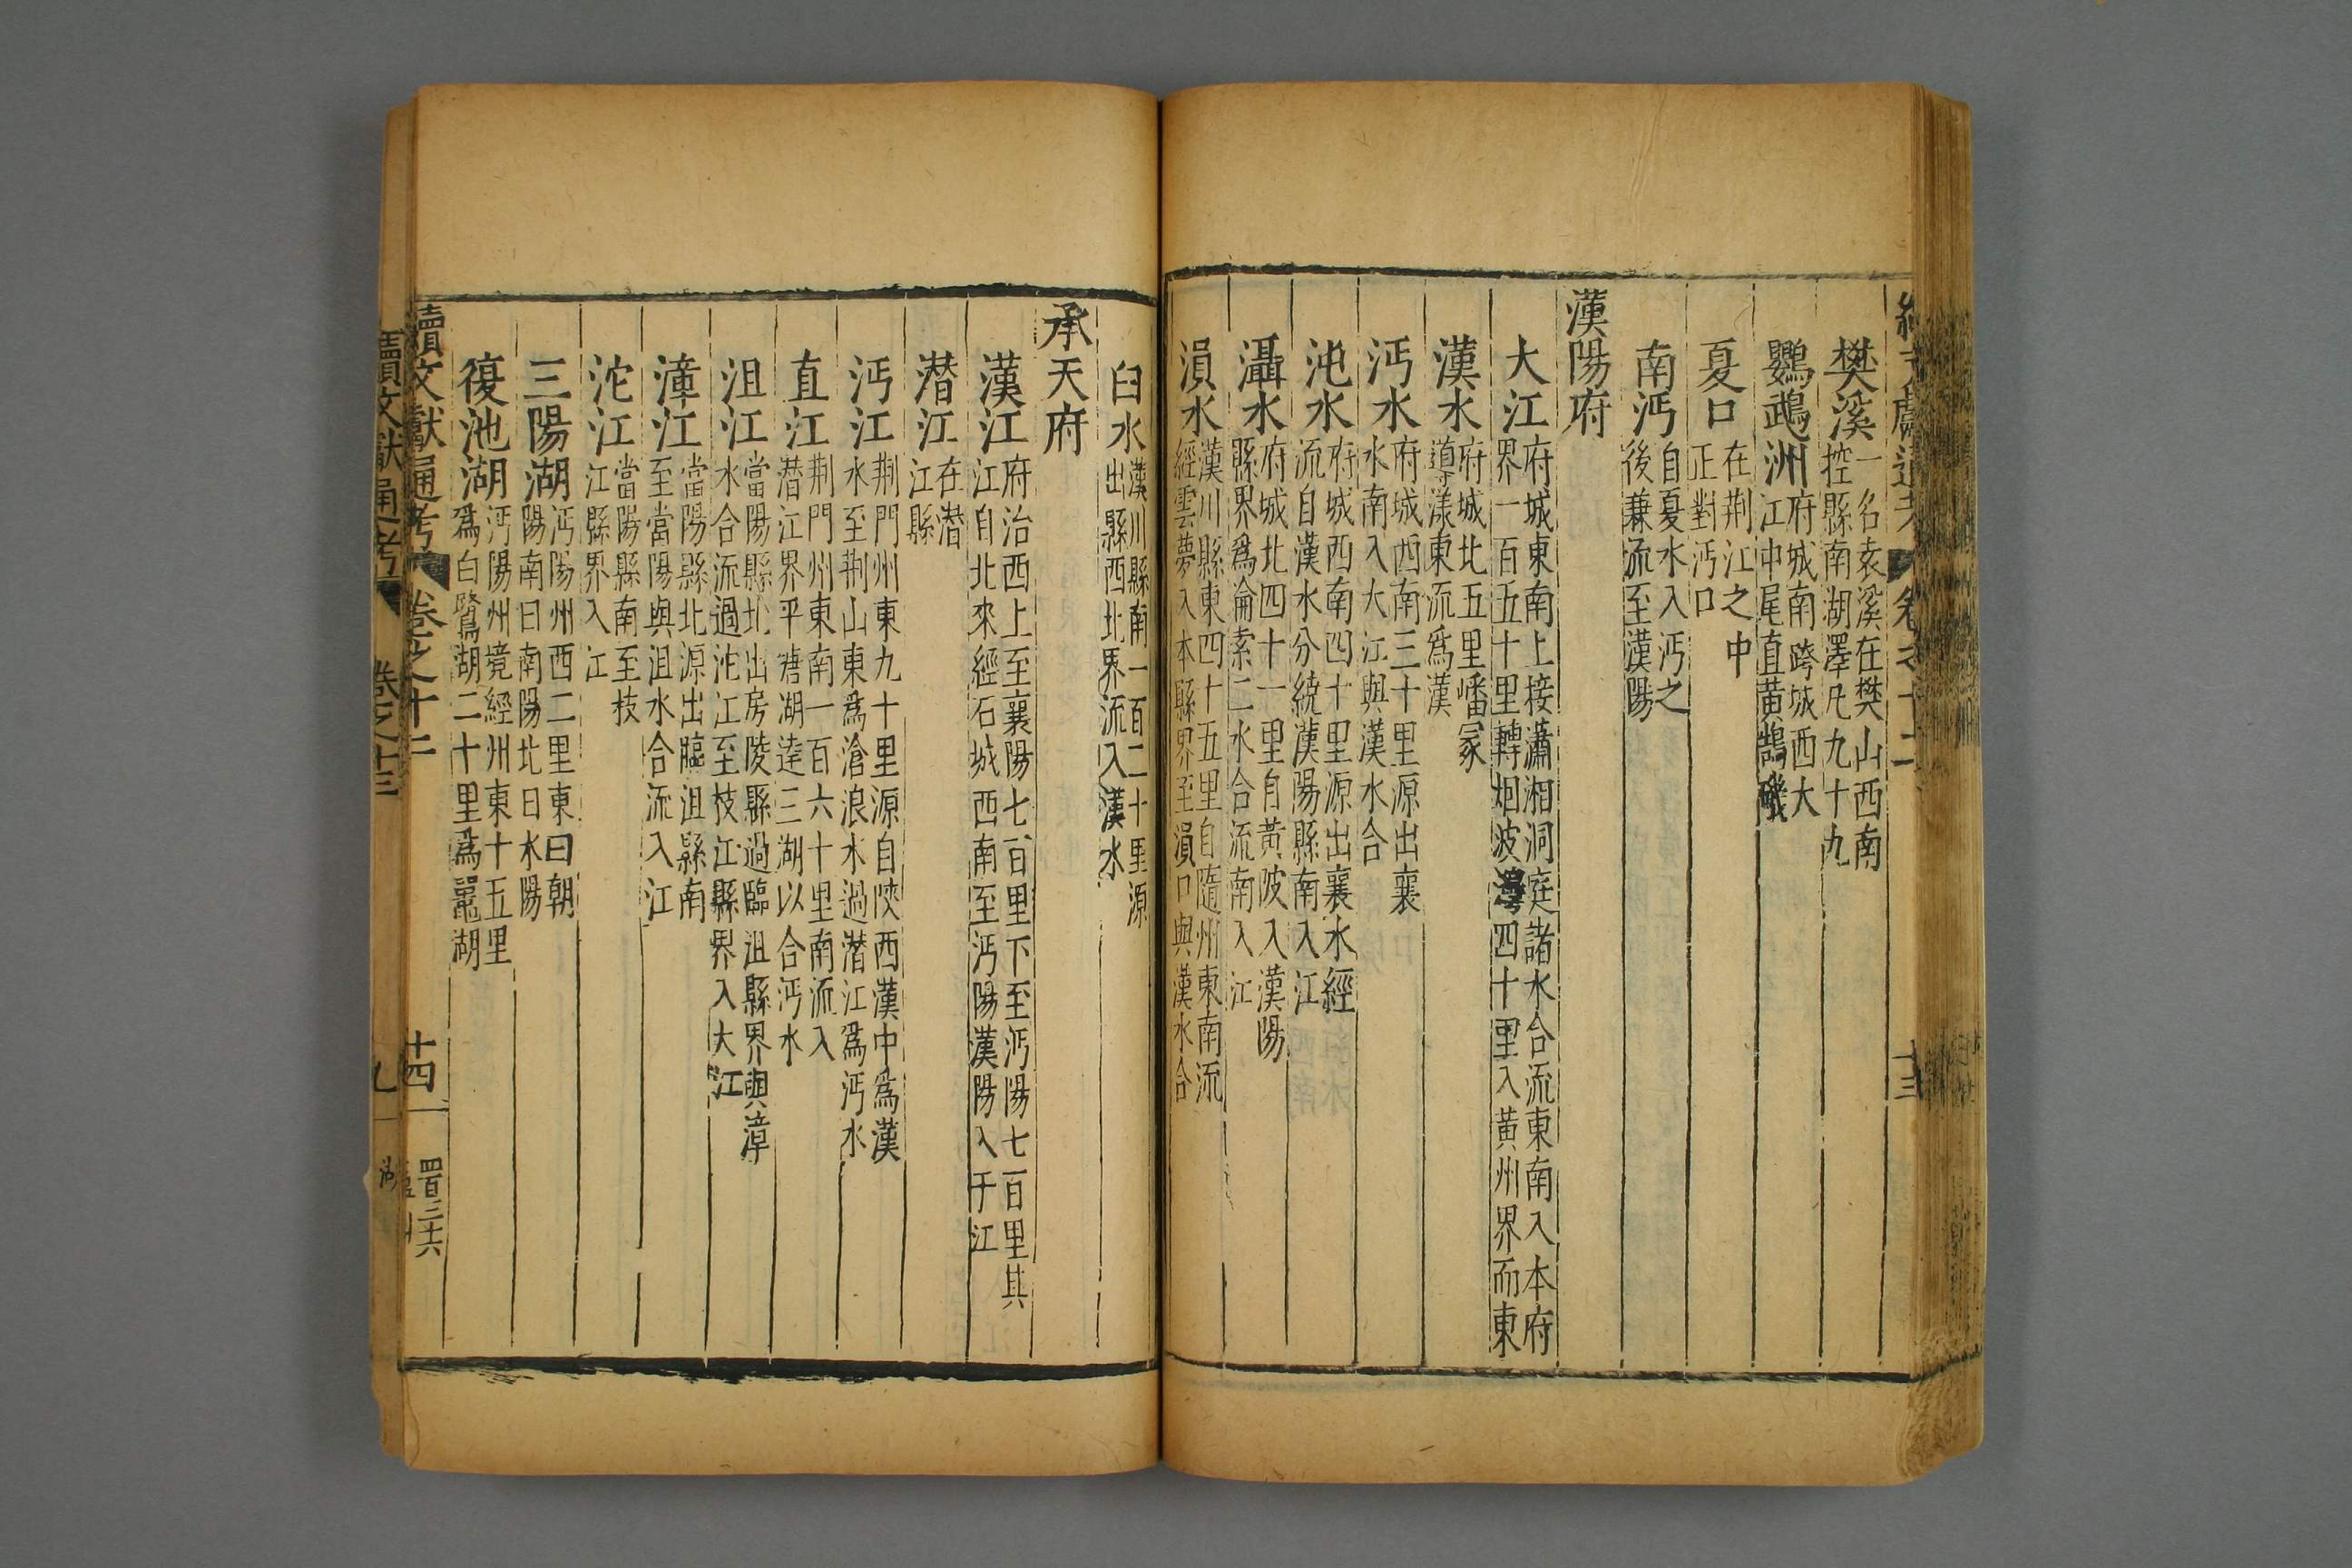 樊溪一名袁溪在樊山西南
控縣南湖澤凡九十九
鸚鵡洲府城南跨城西大
江中尾直黄鵠磯
夏口在荆江之中
正對沔口
南沔自夏水入沔之
後兼流至漢陽
漢陽府
大江府城東南上接瀟湘洞庭諸水合流東南入本府
界一百五十里轉烟波灣四十里入黄州界而東
漢水府城北五里嶓冢
導漾東流爲漢
沔水府城西南三十里源出襄
水南入大江與漢水合
沌水府城西南四十里源出襄水經
流自漢水分繞漢陽縣南入江
灄水府城北四十一里自黄陂入漢陽
縣界爲淪索二水合流南入江
溳水漢川縣東四十五里自隨州東南流
經雲夢入本縣界至溳口與漢水合
臼水漢川縣南一百二十里源
出縣西北界流入漢水
承天府
漢江府治西上至襄陽七百里下至沔陽七百里其
江自北來經石城西南至沔陽漢陽入于江
潜江在潜
江縣
沔江荆門州東九十里源自陜西漢中爲漢
水至荆山東爲滄浪水過潜江爲沔水
直江荆門州東南一百六十里南流入
潜江界平塘湖達三湖以合沔水
沮江當陽縣北出房陵縣過臨沮縣界與漳
水合流過沱江至枝江縣界入大江
漳江當陽縣北源出臨沮縣南
至當陽與沮水合流入江
沱江當陽縣南至枝
江縣界入江
三陽湖沔陽州西二里東曰朝
陽南曰南陽北曰水陽
復池湖沔陽州境經州東十五里
爲白鷺湖二十里爲鼉湖
續文獻通考 卷之十二 十四
續文獻通考 卷之十三 九